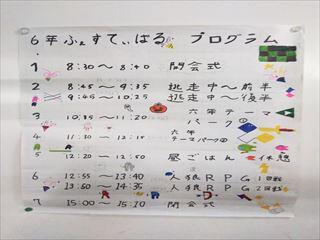 6年ふぇすてぃばる プログラム
1 8:30〜8:40 開会式
2 8:45〜9:35 逃走中〜前半
9:45〜10:25 逃走中〜後半
3 10:35〜11:20 六年テーマパーク①
4 11:30〜12:15 六年テーマパーク②
5 12:20〜12:50 昼ごはん 休憩
6 12:55〜13:40 人狼RPG1回戦
13:50〜14:35 人狼RPG2回戦
7 15:00〜15:10 閉会式